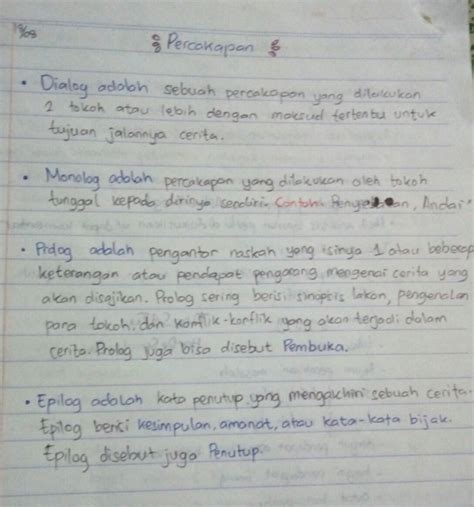 19/08
Percakapan
• Dialog adalah sebuah percakapan yang dilakukan
2 tokoh atau lebih dengan maksud tertentu untuk
tujuan jalannya cerita.
• Monolog adalah percakapan yang dilakukan oleh tokoh
tunggal kepada dirinya sendiri. Contoh: an, Andai"
• Prolog adalah pengantar naskah yang isinya 1 atau beberap
keterangan atau pendapat pengarang mengenai cerita yang
akan disajikan. Prolog sering berisi sinopsis lakon, pengenalan
para tokoh, dan konflik-konflik yang akan terjadi dalam
cerita. Prolog juga bisa disebut Pembuka.
• Epilog adalah kata penutup yang mengakhiri sebuah cerita.
Epilog berisi kesimpulan, amanat, atau kata-kata bijak.
Epilog disebut juga Penutup.